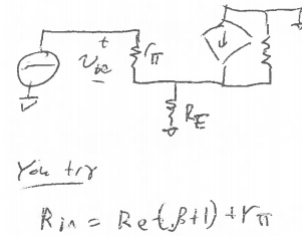 +
rπ
vπ
RE
You try
Rin = Re(β+1) + rπ